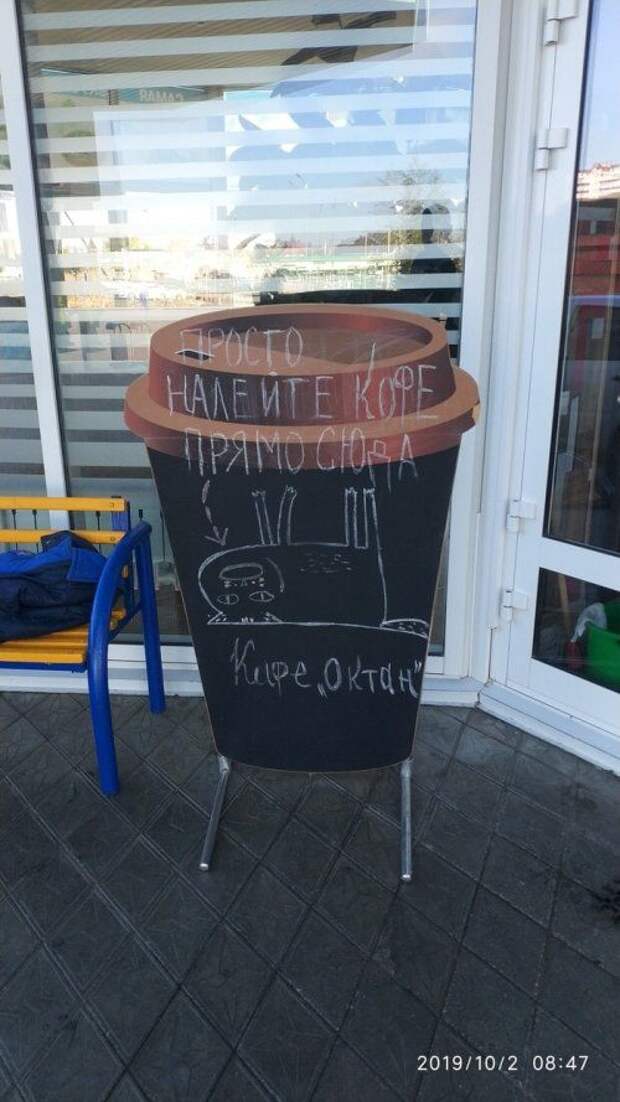 ПРОСТО
НАЛЕЙТЕ КОФЕ
ПРЯМО СЮДА
Кафе „Октан"
2019/10/2 08:47